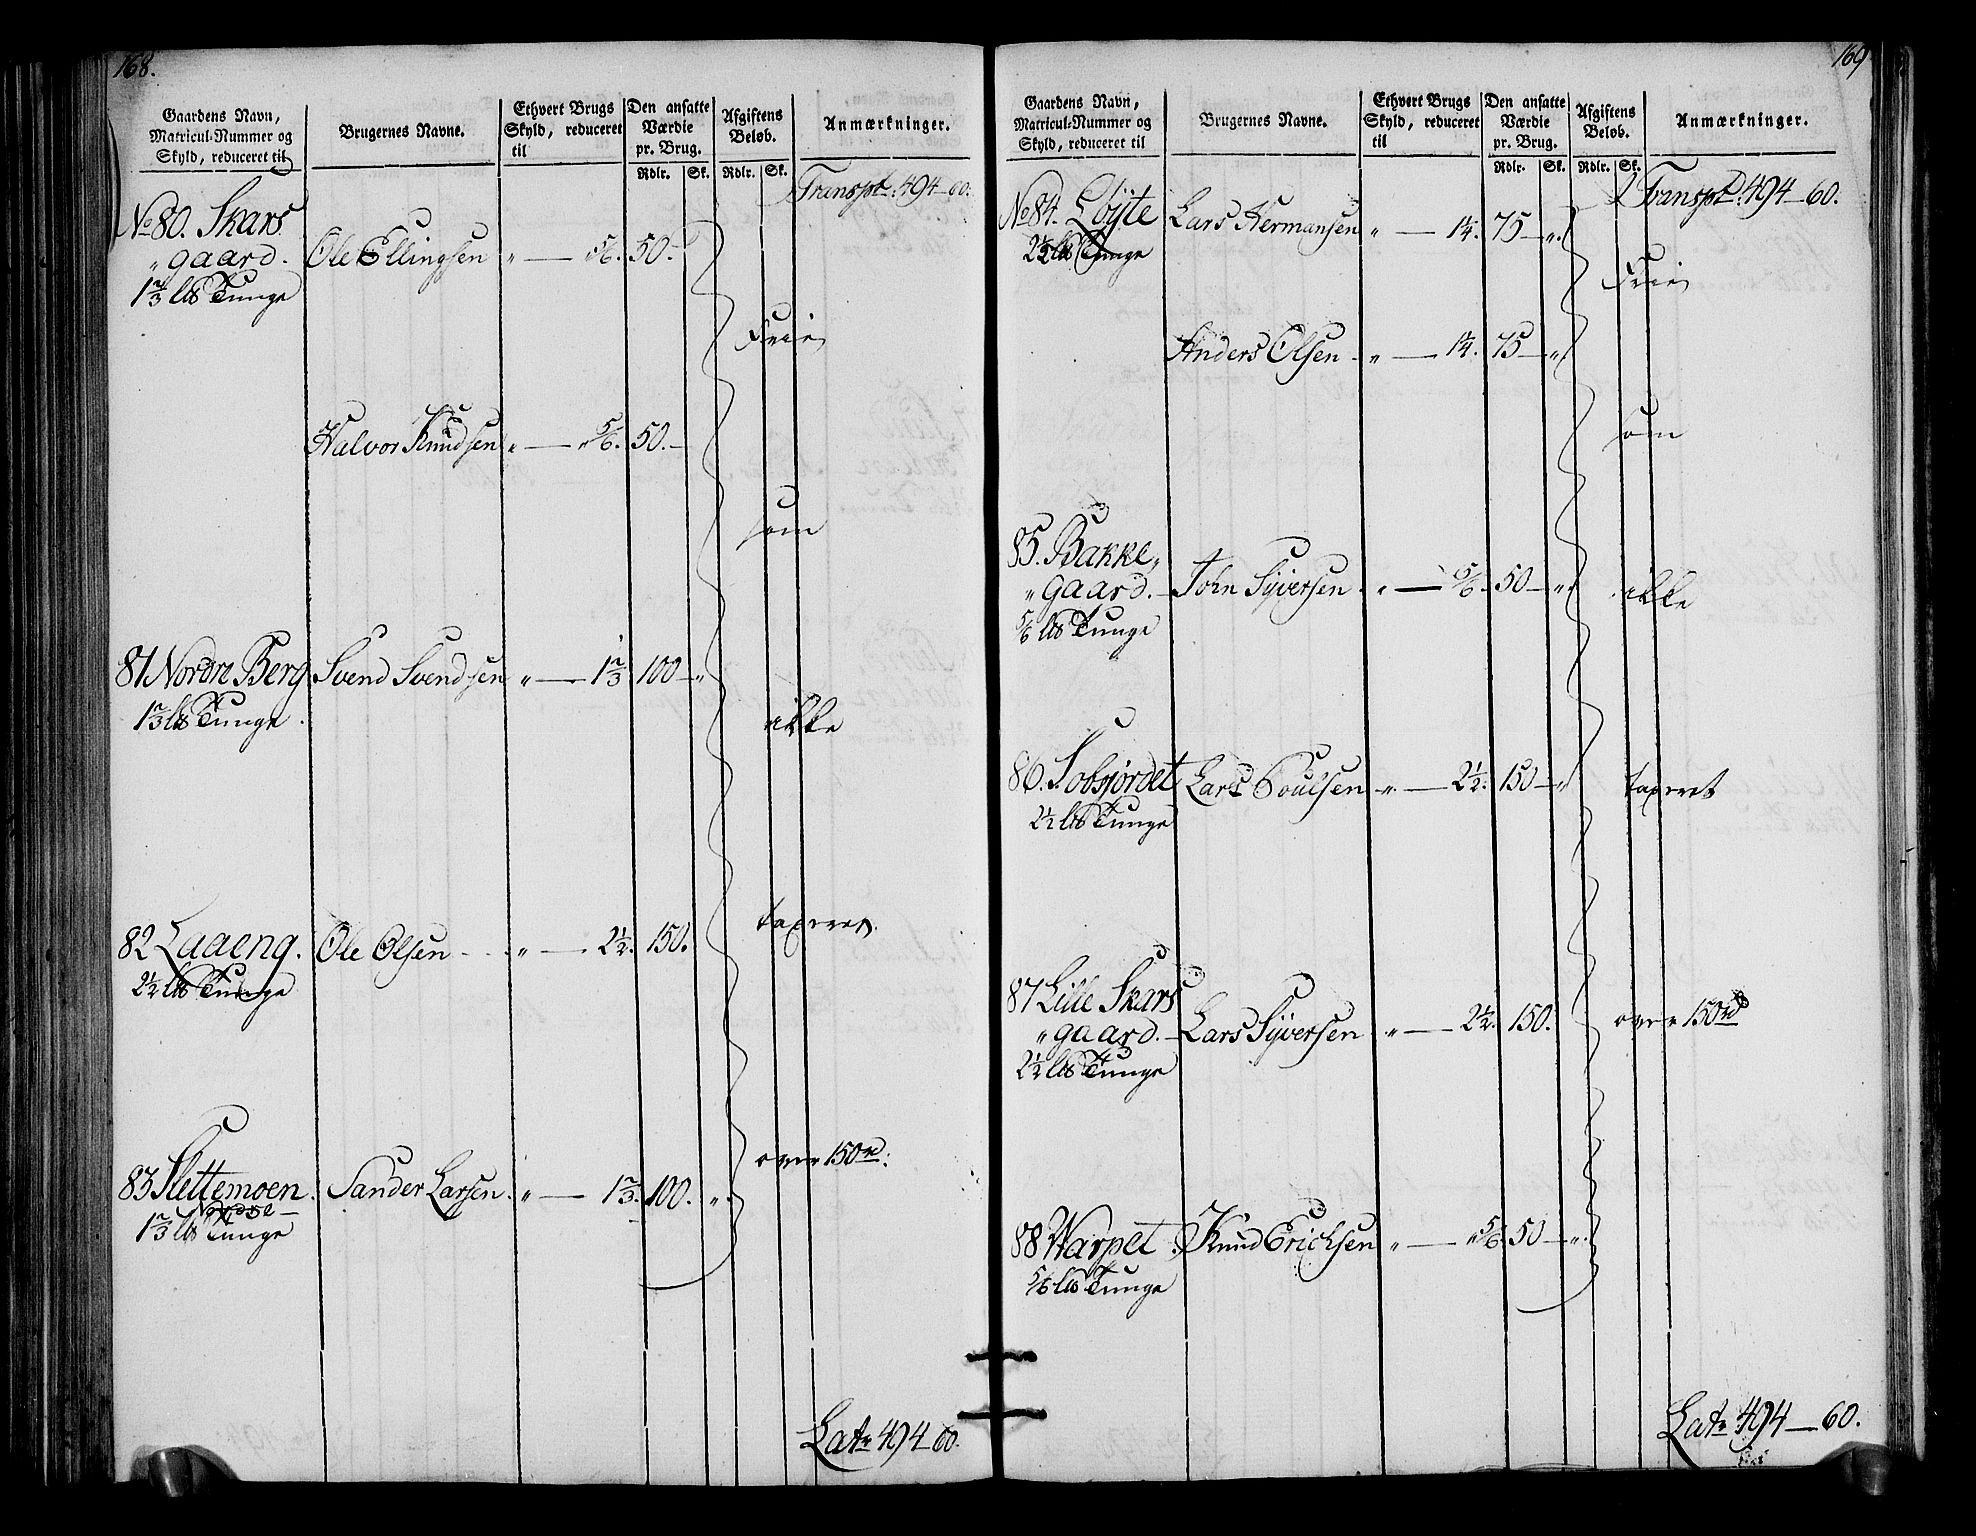 168.
Gaardens Navn,
Matricul-Nummer og
Skyld, reduceret til
Brugernes Navne.
Ethvert Brugs
Skyld, reduceret
til
Den ansatte
Værdie
pr. Brug.
Afgiftens
Beløb.
Anmærkninger.
Rdlr. Sk. Rdlr. Sk.
Transpt. 494-60.
No 80. Skars
"gaard. Ole Ellingsen " — 5/6. 50.-
1 2/3 Lb Tunge
Frie
Halvor Knudsen " — " 5/6. 50.-
som
81 Nordre Berg Svend Svendsen " — 1 2/3 100-"
1 2/3 lb Tunge.
ikke
taxeret.
82 Laaeng. Ole Olsen " — 2 1/2. 150.
2 1/2 lb Tunge
over 150 rd:
83 Slettemoen. Sander Larsen. " — 1 2/3. 100. ".
1 2/3 lb Tunge
Latr 494-60.
169
Gaardens Navn,
Matricul-Nummer og
Skyld, reduceret til
Brugernes Navne.
Ethvert Brugs
Skyld, reduceret
til
Den ansatte
Værdie
pr. Brug.
Afgiftens
Beløb.
Anmærkninger.
Rdlr. Sk. Rdlr. Sk.
Transpt. 494-60.
No 84. Løyte Lars Hermansen " — 1 1/4. 75-".
2 1/2 lb Tunge
Frie
Anders Olsen - " — 1 1/4. 75-"
som
85. Bakke"
"gaard. - John Syversen. " — 5/6. 50-"
5/6 lb Tunge
ikke
86. Tobsjordet Lars Poulsen " — 2 1/2. 150-"
2 1/2 lb Tunge
taxeret
87 Lille Skars
"gaard. - Lars Syversen " — 2 1/2. 150.
2 1/2 lb Tunge
over 150 rd
88 Warpet. Knud Erichsen " — " 5/6. 50-".
5/6 lb Tunge
Latr 494-60.